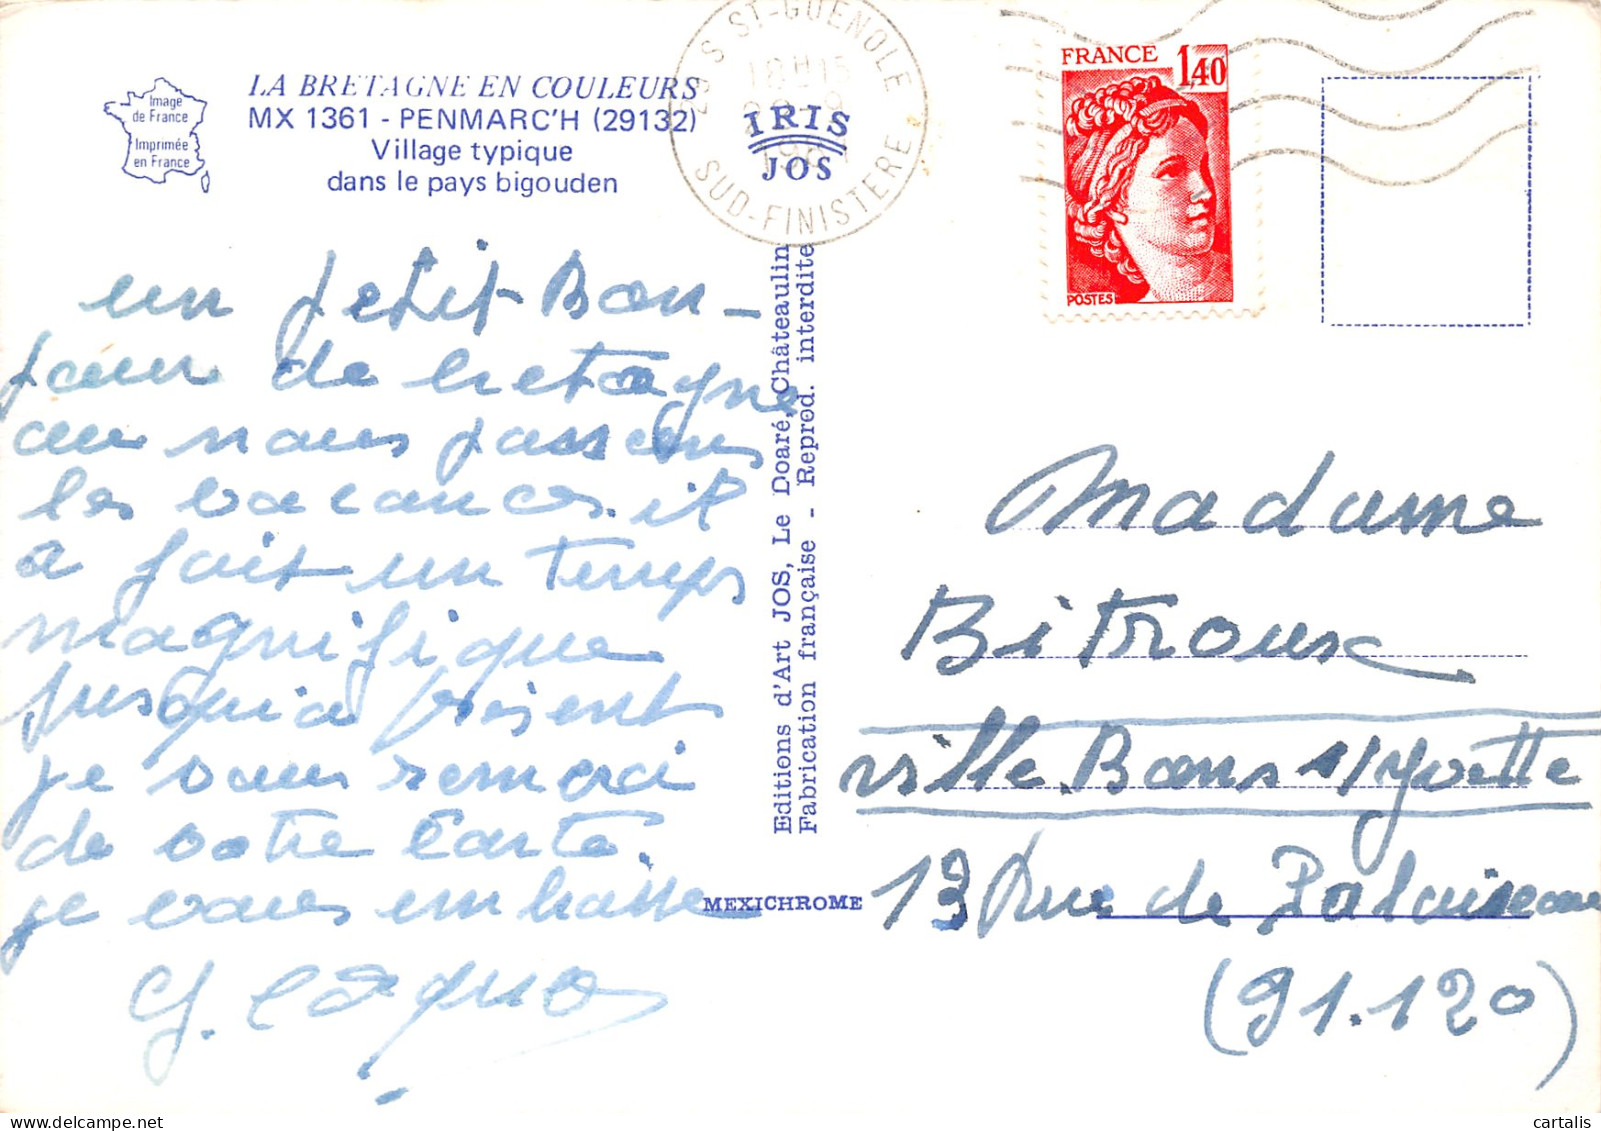 LA BRETAGNE EN COULEURS
MX 1361 - PENMARC'H (29132)
Village typique
dans le pays bigouden
Image
de France
Imprimée
en France
29 S ST-GUENOLE
18H15
SUD-FINISTERE
IRIS
JOS
FRANCE
1,40
POSTES
un petit Bon-
jour de bretagne
ou nous passons
les vacances. il
a fait un temps
magnifique
jusqu'a présent
je vous remerci
de votre Carte.
je vous embrasse
Editions d'Art JOS, Le Doaré, Châteaulin
Fabrication française - Reprod. interdite
MEXICHROME
Madame
Bitroux
ville Bons s/yvette
13 Rue de Palaiseau
(91.120)
cartalis